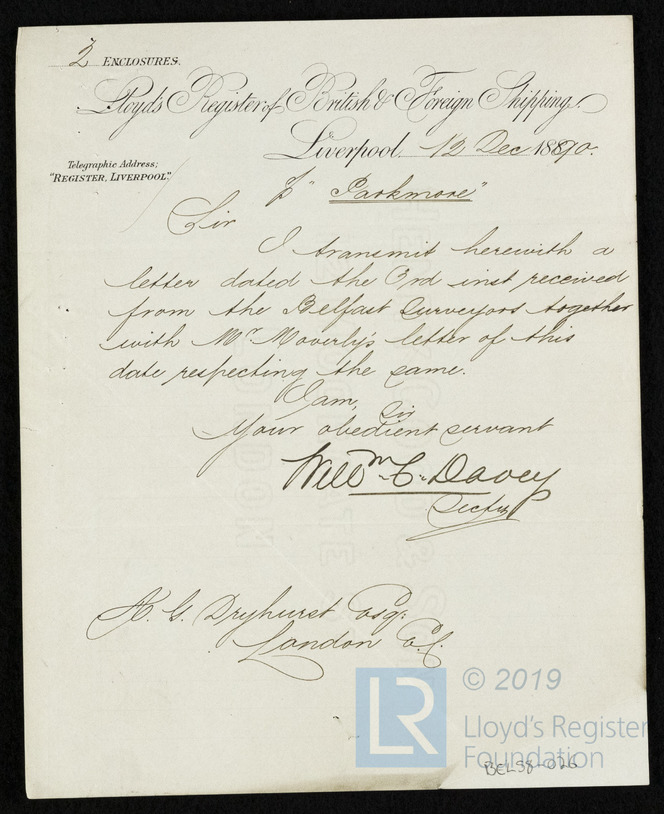 2 ENCLOSURES.
Lloyd's Register of British & Foreign Shipping.
Liverpool. 12 Dec 1890.
Telegraphic Address;
"REGISTER, LIVERPOOL".
"Parkmore"
Sir
I transmit herewith a
letter dated the 3rd inst received
from the Belfast Surveyors together
with Mr Moverly's letter of this
date respecting the same.
I am, Sir
Your obedient servant
Willm C. Davey
Secty
A. G. Dryhurst Esq:
London E.C.
© 2019
LR
Lloyd's Register
Foundation
BEL38-026